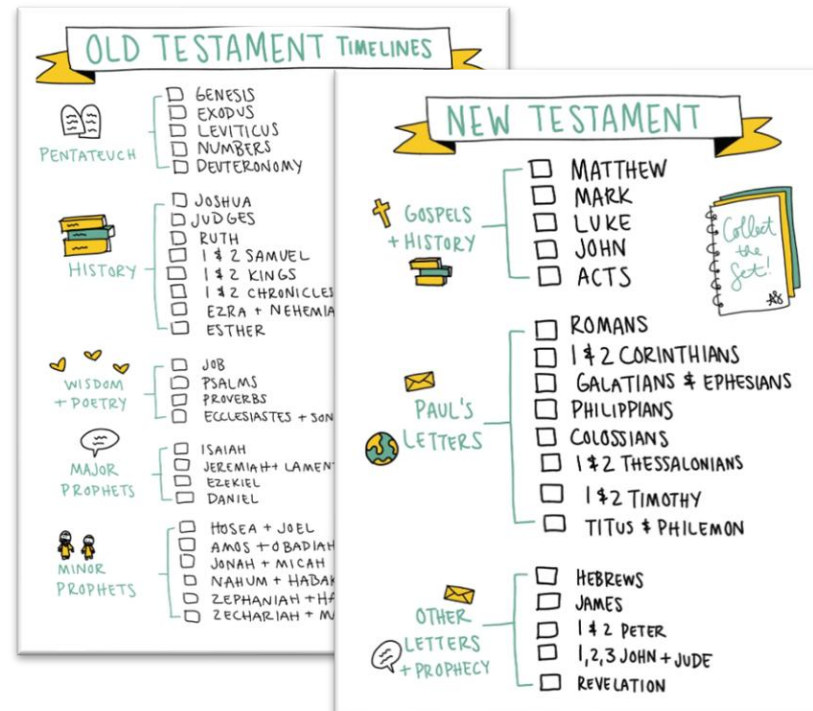 OLD TESTAMENT TIMELINES
PENTATEUCH
GENESIS
EXODUS
LEVITICUS
NUMBERS
DEUTERONOMY
HISTORY
JOSHUA
JUDGES
RUTH
1 & 2 SAMUEL
1 & 2 KINGS
1 & 2 CHRONICLES
EZRA + NEHEMIA
ESTHER
WISDOM
+ POETRY
JOB
PSALMS
PROVERBS
ECCLESIASTES + SON
MAJOR
PROPHETS
ISAIAH
JEREMIAH + LAMEN
EZEKIEL
DANIEL
MINOR
PROPHETS
HOSEA + JOEL
AMOS + OBADIAH
JONAH + MICAH
NAHUM + HABAK
ZEPHANIAH + HA
ZECHARIAH + M
NEW TESTAMENT
GOSPELS
+ HISTORY
MATTHEW
MARK
LUKE
JOHN
ACTS
Collect
the
Set!
PAUL'S
LETTERS
ROMANS
1 & 2 CORINTHIANS
GALATIANS & EPHESIANS
PHILIPPIANS
COLOSSIANS
1 & 2 THESSALONIANS
1 & 2 TIMOTHY
TITUS & PHILEMON
OTHER
LETTERS
+ PROPHECY
HEBREWS
JAMES
1 & 2 PETER
1,2,3 JOHN + JUDE
REVELATION